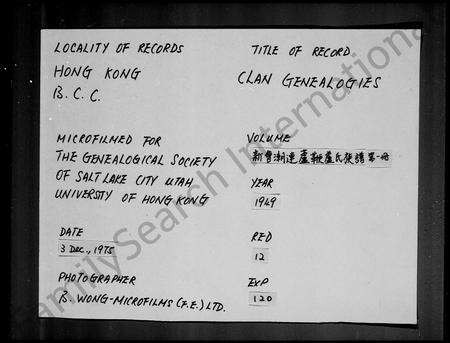 LOCALITY OF RECORDS
HONG KONG
B. C. C.
TITLE OF RECORD
CLAN GENEALOGIES
MICROFILMED FOR
THE GENEALOGICAL SOCIETY
OF SALT LAKE CITY UTAH
UNIVERSITY OF HONG KONG
VOLUME
新會潮連蘆鞭盧氏族譜第一冊
YEAR
1949
DATE
3 Dec., 1975
RED
12
PHOTOGRAPHER
B. WONG-MICROFILMS (F.E.) LTD.
EXP
120
FamilySearch International